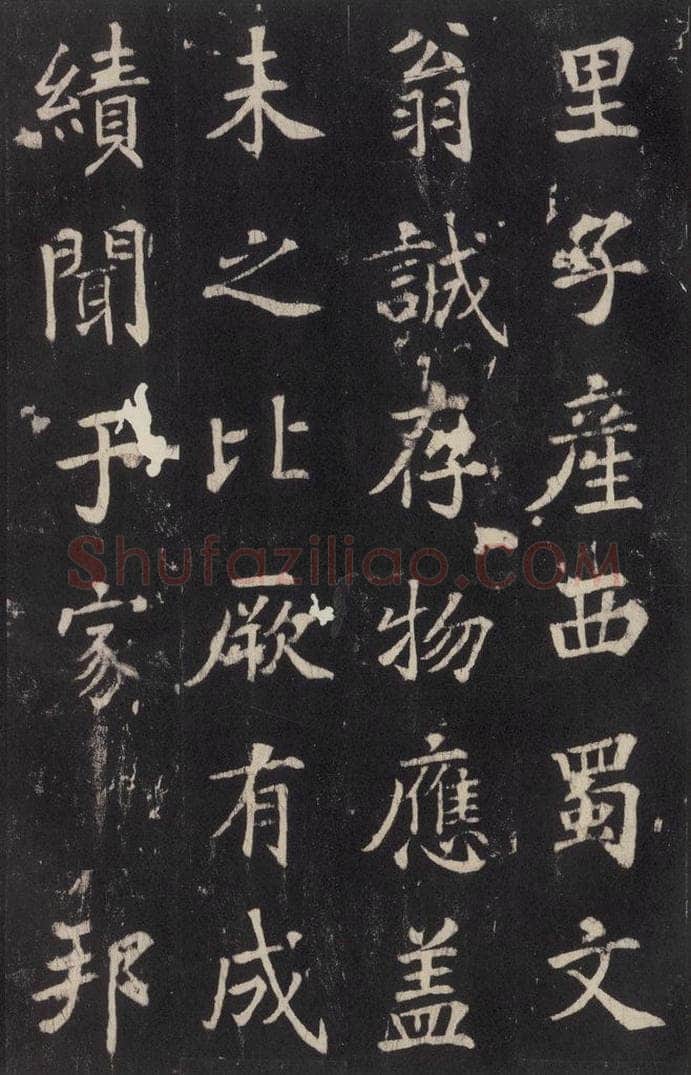 里子產西蜀文
翁誠存物應盖
未之比厥有成
績聞于家邦
Shufaziliao.COM